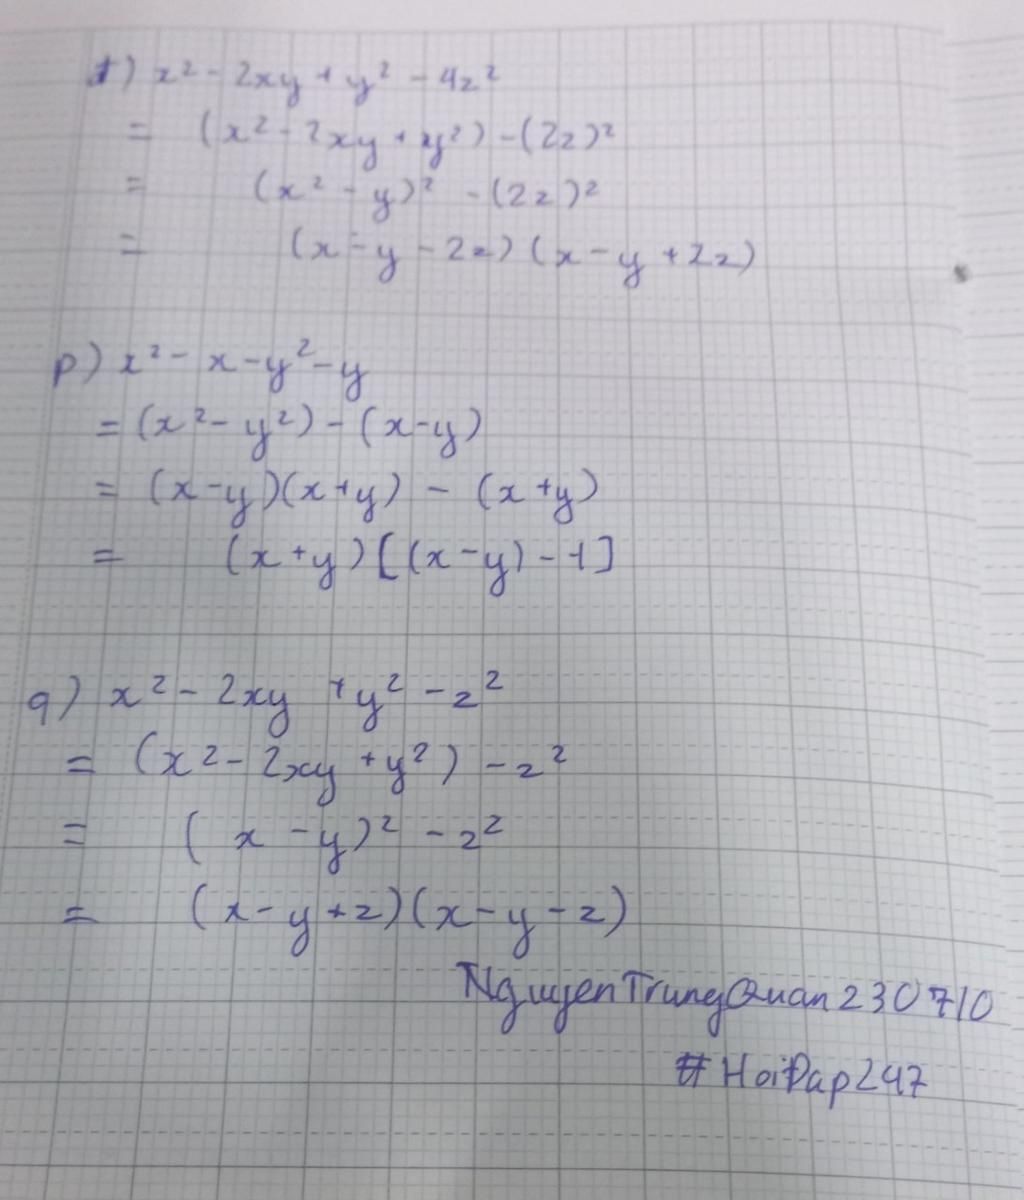 t) x² - 2xy + y² - 4z²
= (x² - 2xy + y²) - (2z)²
= (x² - y)² - (2z)²
= (x - y - 2z) (x - y + 2z)
p) x² - x - y² - y
= (x² - y²) - (x - y)
= (x - y)(x + y) - (x + y)
= (x + y) [(x - y) - 1]
q) x² - 2xy + y² - z²
= (x² - 2xy + y²) - z²
= (x - y)² - z²
= (x - y + z)(x - y - z)
NguyenTrungQuan230710
#HoiĐap247